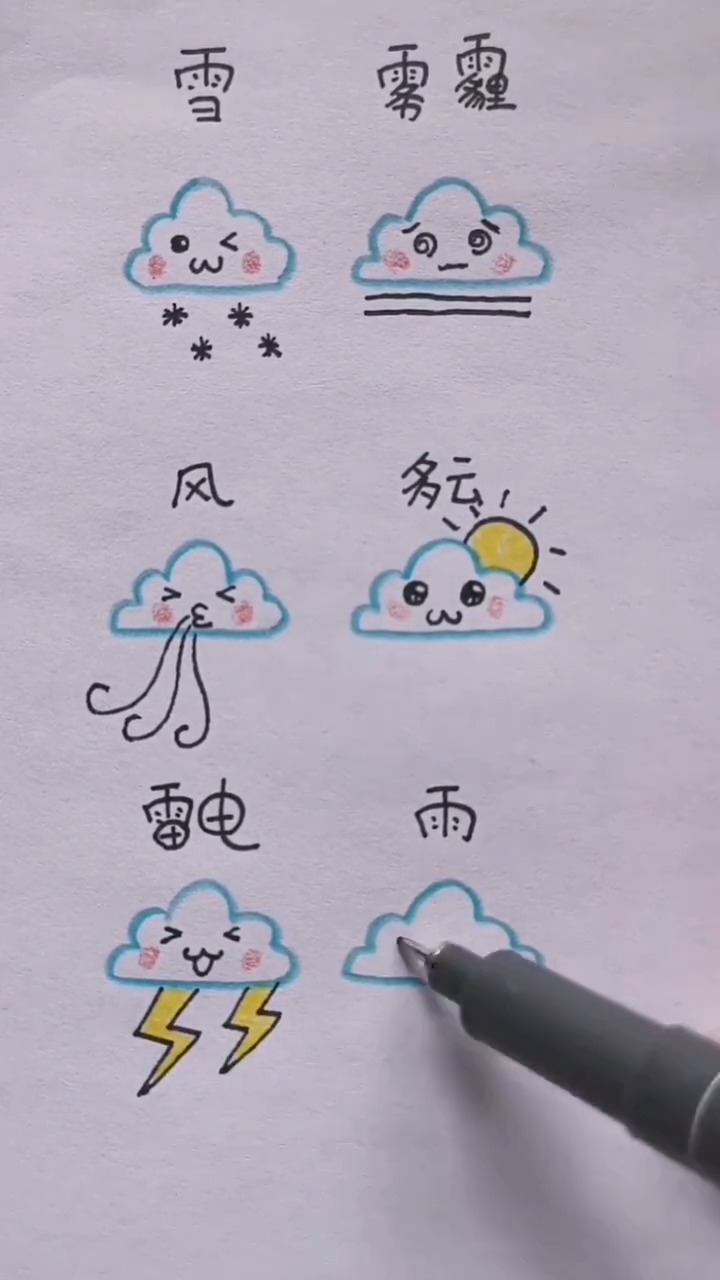 雪 雾霾
风 多云
雷电 雨